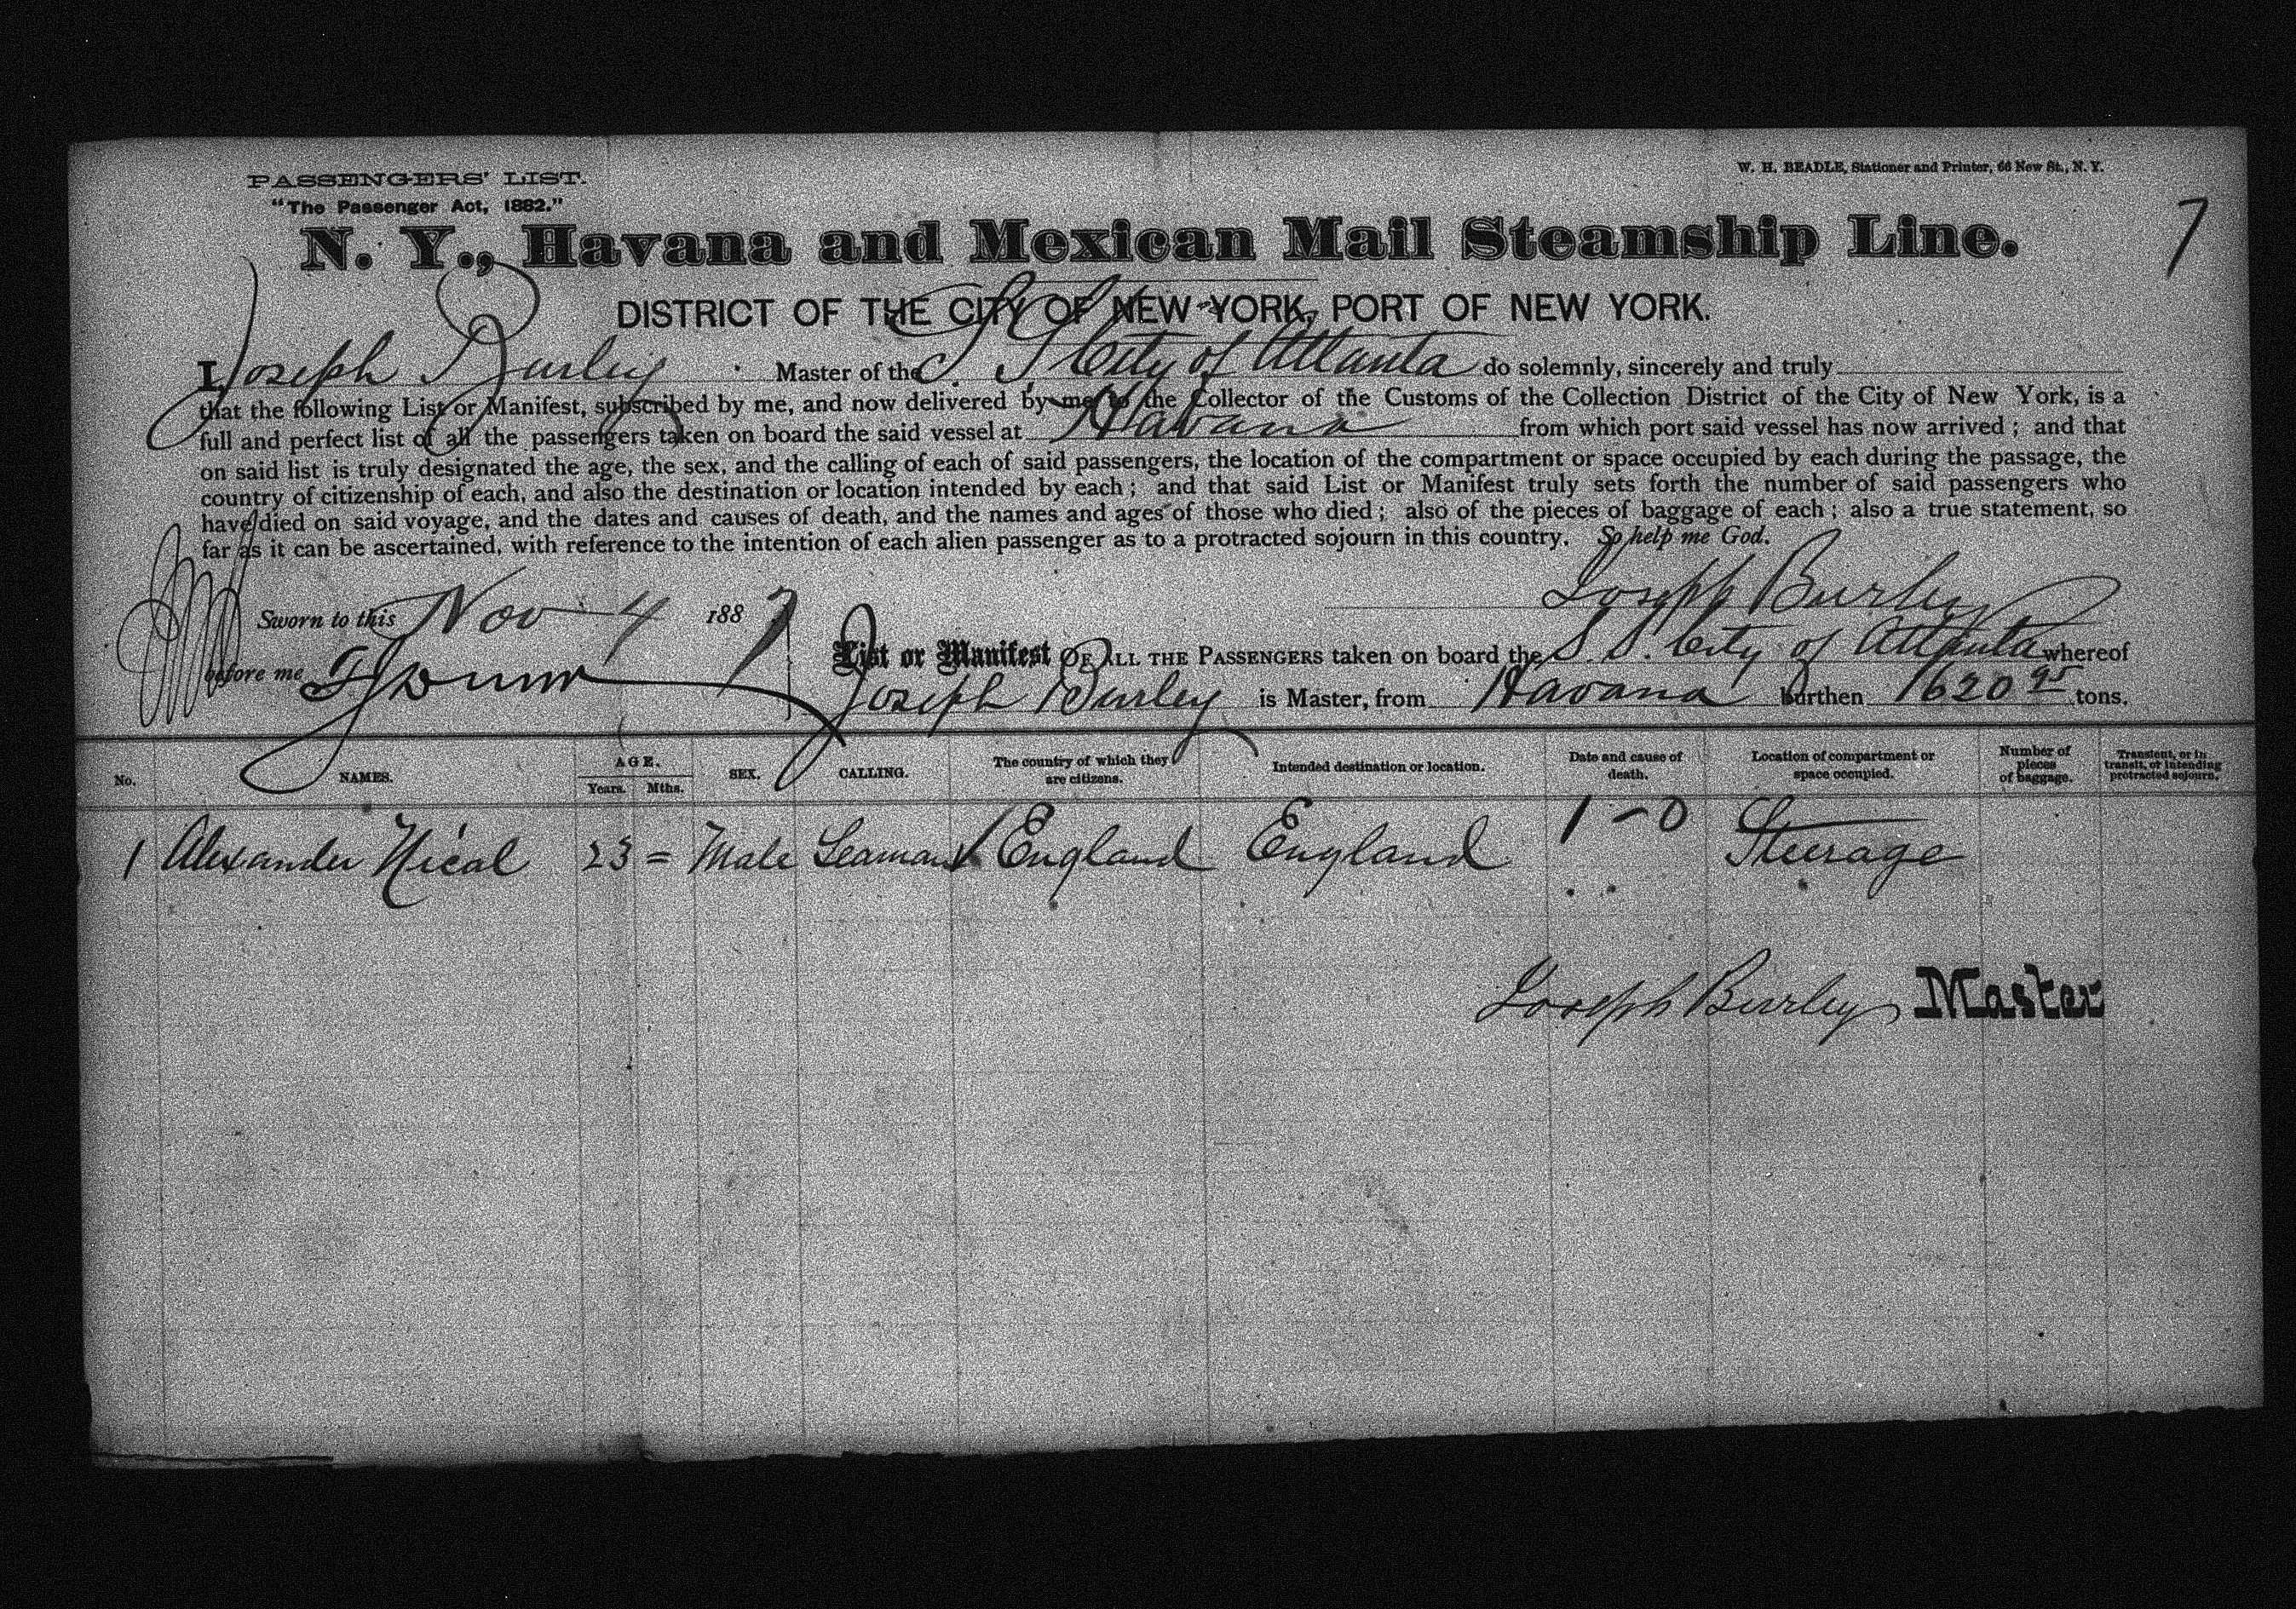 PASSENGERS' LIST.
"The Passenger Act, 1882."
W. H. BEADLE, Stationer and Printer, 66 New St., N. Y.
7
N. Y., Havana and Mexican Mail Steamship Line.
DISTRICT OF THE CITY OF NEW-YORK, PORT OF NEW YORK.
I, Joseph Burley Master of the S. S. City of Atlanta do solemnly, sincerely and truly
that the following List or Manifest, subscribed by me, and now delivered by me to the Collector of the Customs of the Collection District of the City of New York, is a
full and perfect list of all the passengers taken on board the said vessel at Havana from which port said vessel has now arrived; and that
on said list is truly designated the age, the sex, and the calling of each of said passengers, the location of the compartment or space occupied by each during the passage, the
country of citizenship of each, and also the destination or location intended by each; and that said List or Manifest truly sets forth the number of said passengers who
have died on said voyage, and the dates and causes of death, and the names and ages of those who died; also of the pieces of baggage of each; also a true statement, so
far as it can be ascertained, with reference to the intention of each alien passenger as to a protracted sojourn in this country. So help me God.
Joseph Burley
Sworn to this Nov 4 1887
before me
List or Manifest OF ALL THE PASSENGERS taken on board the S. S. City of Atlanta whereof
Joseph Burley is Master, from Havana burthen 1620 95 tons.
No. NAMES. AGE. Years. Mths. SEX. CALLING. The country of which they are citizens. Intended destination or location. Date and cause of death. Location of compartment or space occupied. Number of pieces of baggage. Transient, or in transit, or intending protracted sojourn.
1 Alexander Nical 23 = Male Seaman England England 1-0 Steerage
Joseph Burley Master